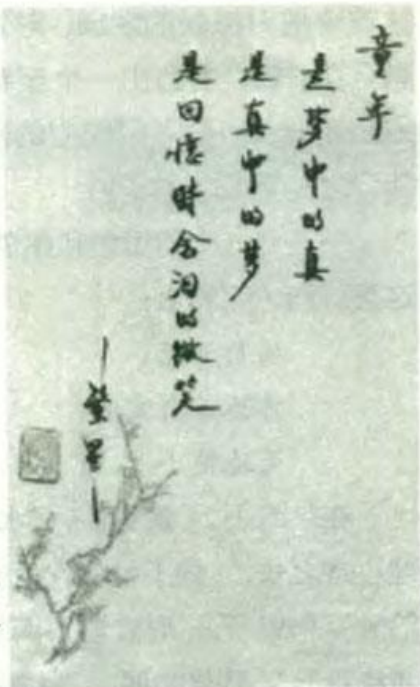 童年
是夢中的真
是真中的夢
是回憶時含泪的微笑
—繁星—